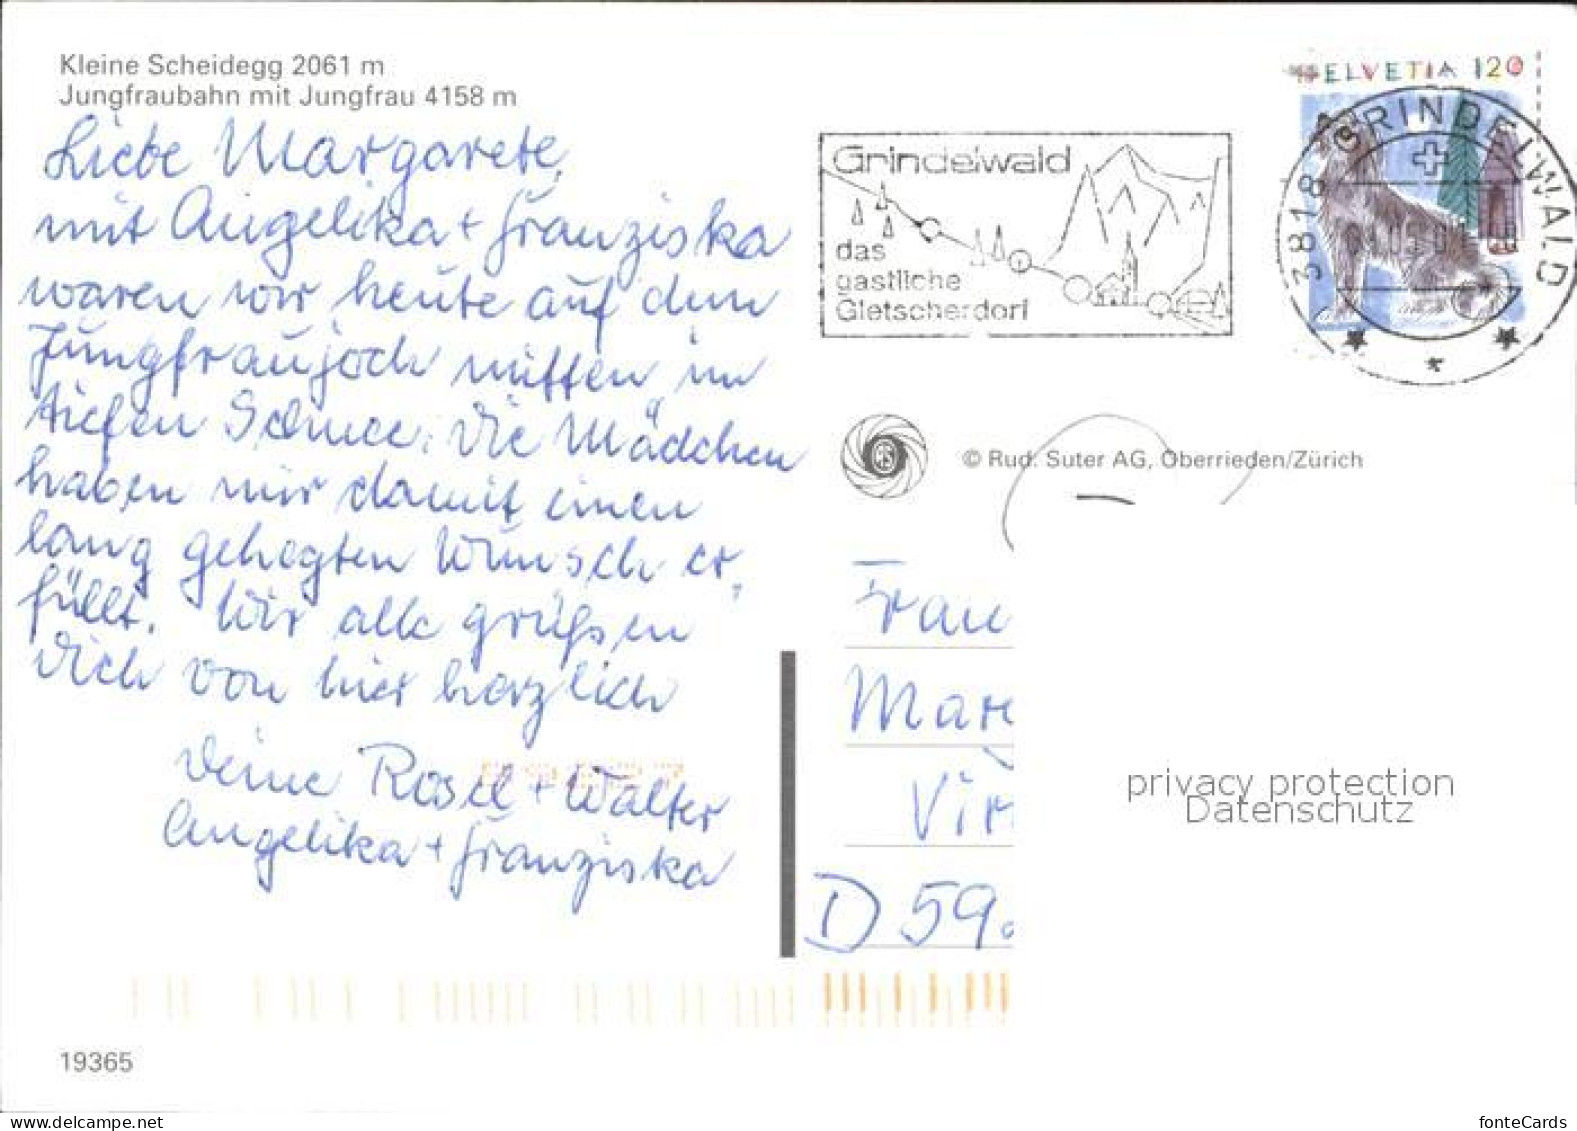 Kleine Scheidegg 2061 m
Jungfraubahn mit Jungfrau 4158 m
Liebe Margarete,
mit Angelika + Franziska
waren wir heute auf dem
Jungfraujoch mitten im
tiefen Schnee. Die Mädchen
haben mir damit einen
lang gehegten Wunsch er-
füllt. Wir alle grüßen
Dich von hier herzlich
Deine Rosel + Walter
Angelika + Franziska
19365
Grindelwald
das
gastliche
Gletscherdorf
HELVETIA 120
3818 GRINDELWALD
© Rud. Suter AG, Oberrieden/Zürich
Frau
Mar
Vir
D 59
privacy protection
Datenschutz
www.delcampe.net
fonteCards